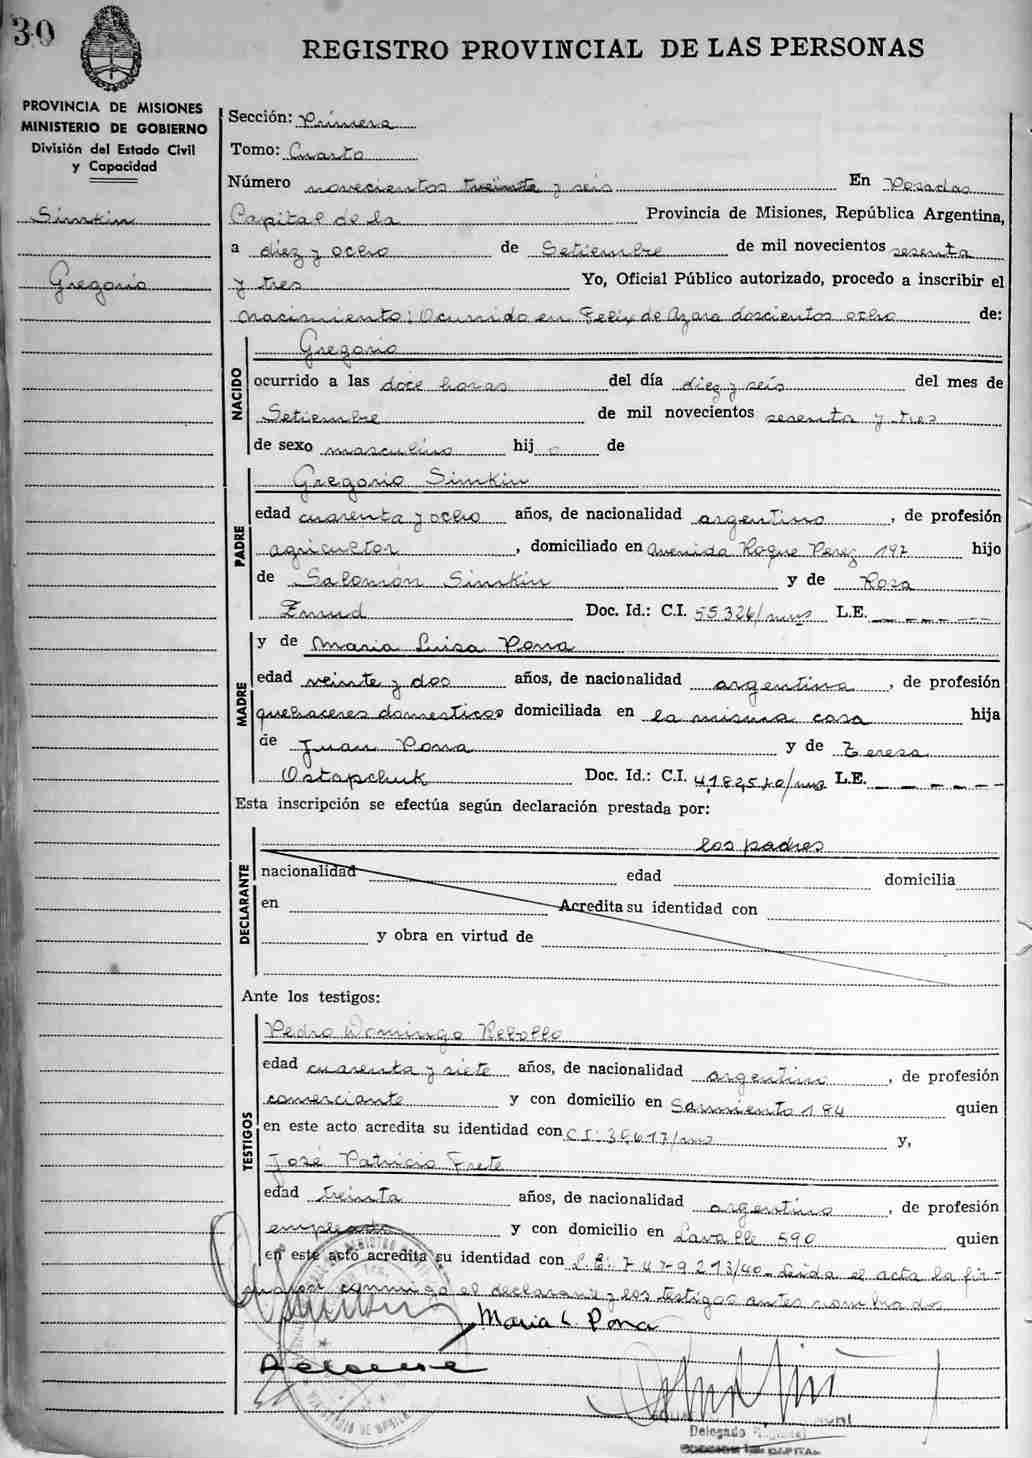 30
REGISTRO PROVINCIAL DE LAS PERSONAS
PROVINCIA DE MISIONES
MINISTERIO DE GOBIERNO
División del Estado Civil
y Capacidad
Simkin
Gregorio
Sección: Primera
Tomo: Cuarto
Número novecientos treinta y seis En Posadas
Capital de la Provincia de Misiones, República Argentina,
a diez y ocho de Setiembre de mil novecientos sesenta
y tres Yo, Oficial Público autorizado, procedo a inscribir el
nacimiento: Ocurrido en Felix de Azara doscientos ocho de:
NACIDO
Gregorio
ocurrido a las doce horas del día diez y seis del mes de
Setiembre de mil novecientos sesenta y tres
de sexo masculino hij o de
PADRE
Gregorio Simkin
edad cuarenta y ocho años, de nacionalidad argentino, de profesión
agricultor, domiciliado en Avenida Roque Perez 197 hijo
de Salomón Simkin y de Rosa
Doc. Id.: C.I. 55.326/mns L.E. - - - - - - -
y de Maria Luisa Pona
MADRE
edad veinte y dos años, de nacionalidad argentina, de profesión
quehaceres domesticos domiciliada en la misma casa hija
de Juan Pona y de Teresa
Ostapchuk Doc. Id.: C.I. L.E. - - - - - -
Esta inscripción se efectúa según declaración prestada por:
los padres
DECLARANTE
nacionalidad edad domicilia
en Acredita su identidad con
y obra en virtud de
Ante los testigos:
TESTIGOS
Pedro Domingo Rebollo
edad cuarenta y siete años, de nacionalidad argentino, de profesión
comerciante y con domicilio en Sarmiento 184 quien
en este acto acredita su identidad con C I: y,
José Patricio Frete
edad treinta años, de nacionalidad argentino, de profesión
empleado y con domicilio en Lavalle 590 quien
en este acto acredita su identidad con L.E: Leida el acta la fir-
man conmigo el declarante y los testigos antes nombrados
Maria L. Pona
Delegado
CAPITAL